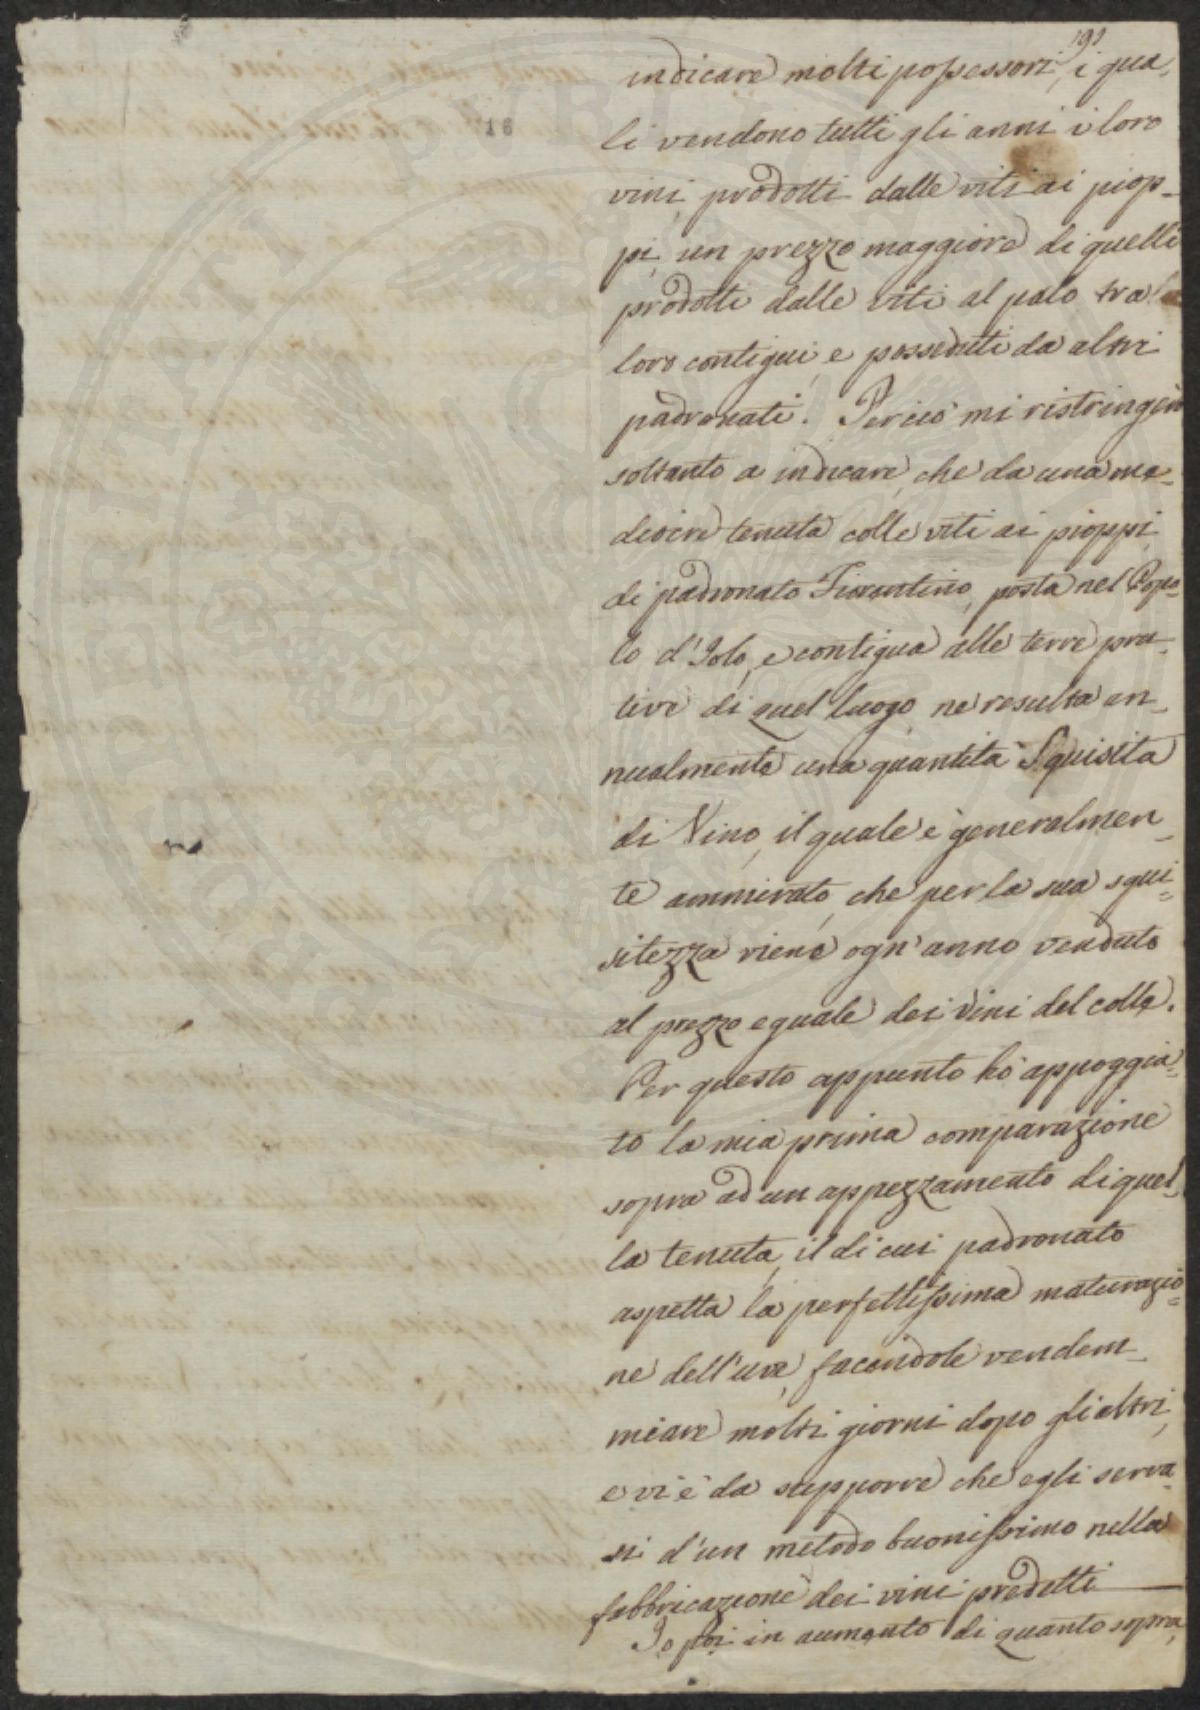 191
indicare molti possessori, i qua-
18
li vendono tutti gli anni i loro
vini, prodotti dalle viti ai piop-
pi, un prezzo maggiore di quelli
prodotti dalle viti al palo tra
loro contigui, e posseduti da altri
padronati. Perciò mi ristringerò
soltanto a indicare, che da una me-
diocre tenuta colle viti ai pioppi
di padronato Fiorentino, posta nel Popo-
lo d'Jolo, e contigua alle terre pra-
tive di quel luogo ne resulta an-
nualmente una quantità Squisita
di Vino, il quale è generalmen-
te ammirato, che per la sua squi=
sitezza viene ogn'anno venduto
al prezzo eguale dei Vini del colle.
Per questo appunto hò appoggia=
to la mia prima comparazione
sopra ad un appezzamento di quel-
la tenuta, il di cui padronato
aspetta la perfettissima maturazio=
ne dell'uve, facendole vendem-
miare molti giorni dopo gli altri,
e vi è da supporre che egli serva-
si d'un metodo buonissimo nella
fabbricazione dei vini predetti
Io poi in aumento di quanto sopra,